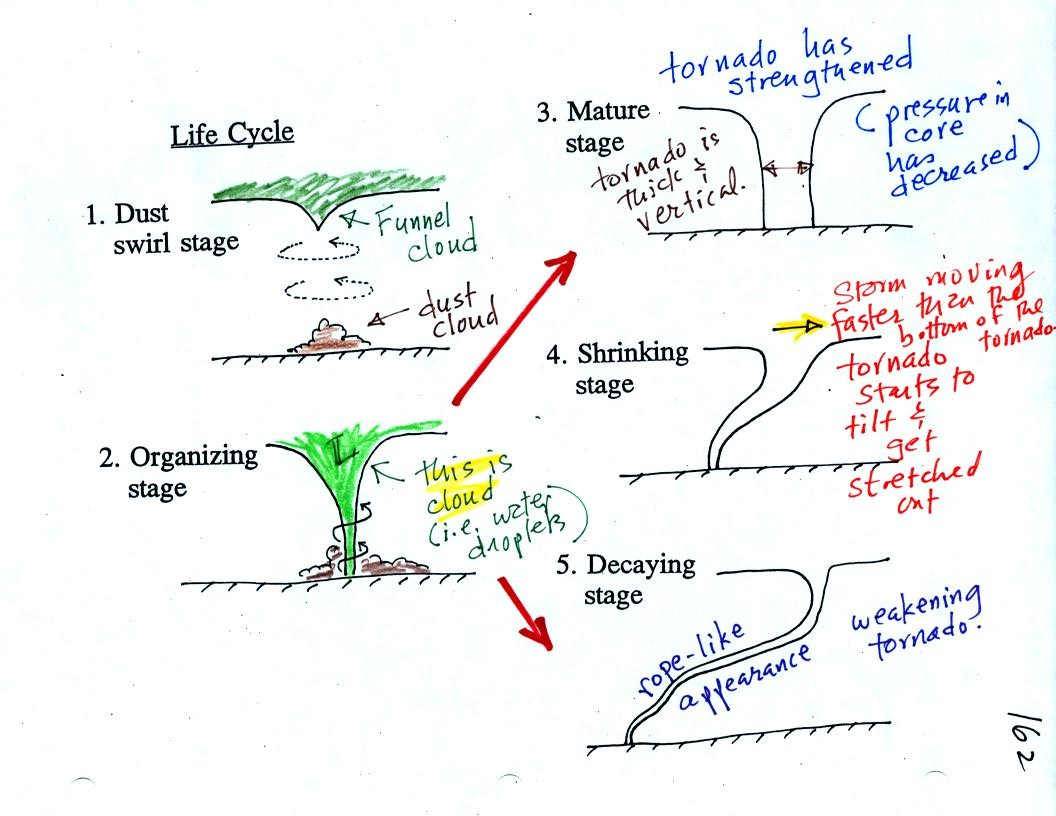 Life Cycle
1. Dust
swirl stage
Funnel
cloud
dust
cloud
2. Organizing
stage
L
this is
cloud
(i.e. water
droplets)
tornado has
strengthened
3. Mature
stage
tornado is
thick &
vertical.
(pressure in
core
has
decreased)
4. Shrinking
stage
Storm moving
faster than the
bottom of the
tornado.
tornado
starts to
tilt &
get
stretched
out
5. Decaying
stage
rope-like
appearance
weakening
tornado.
162